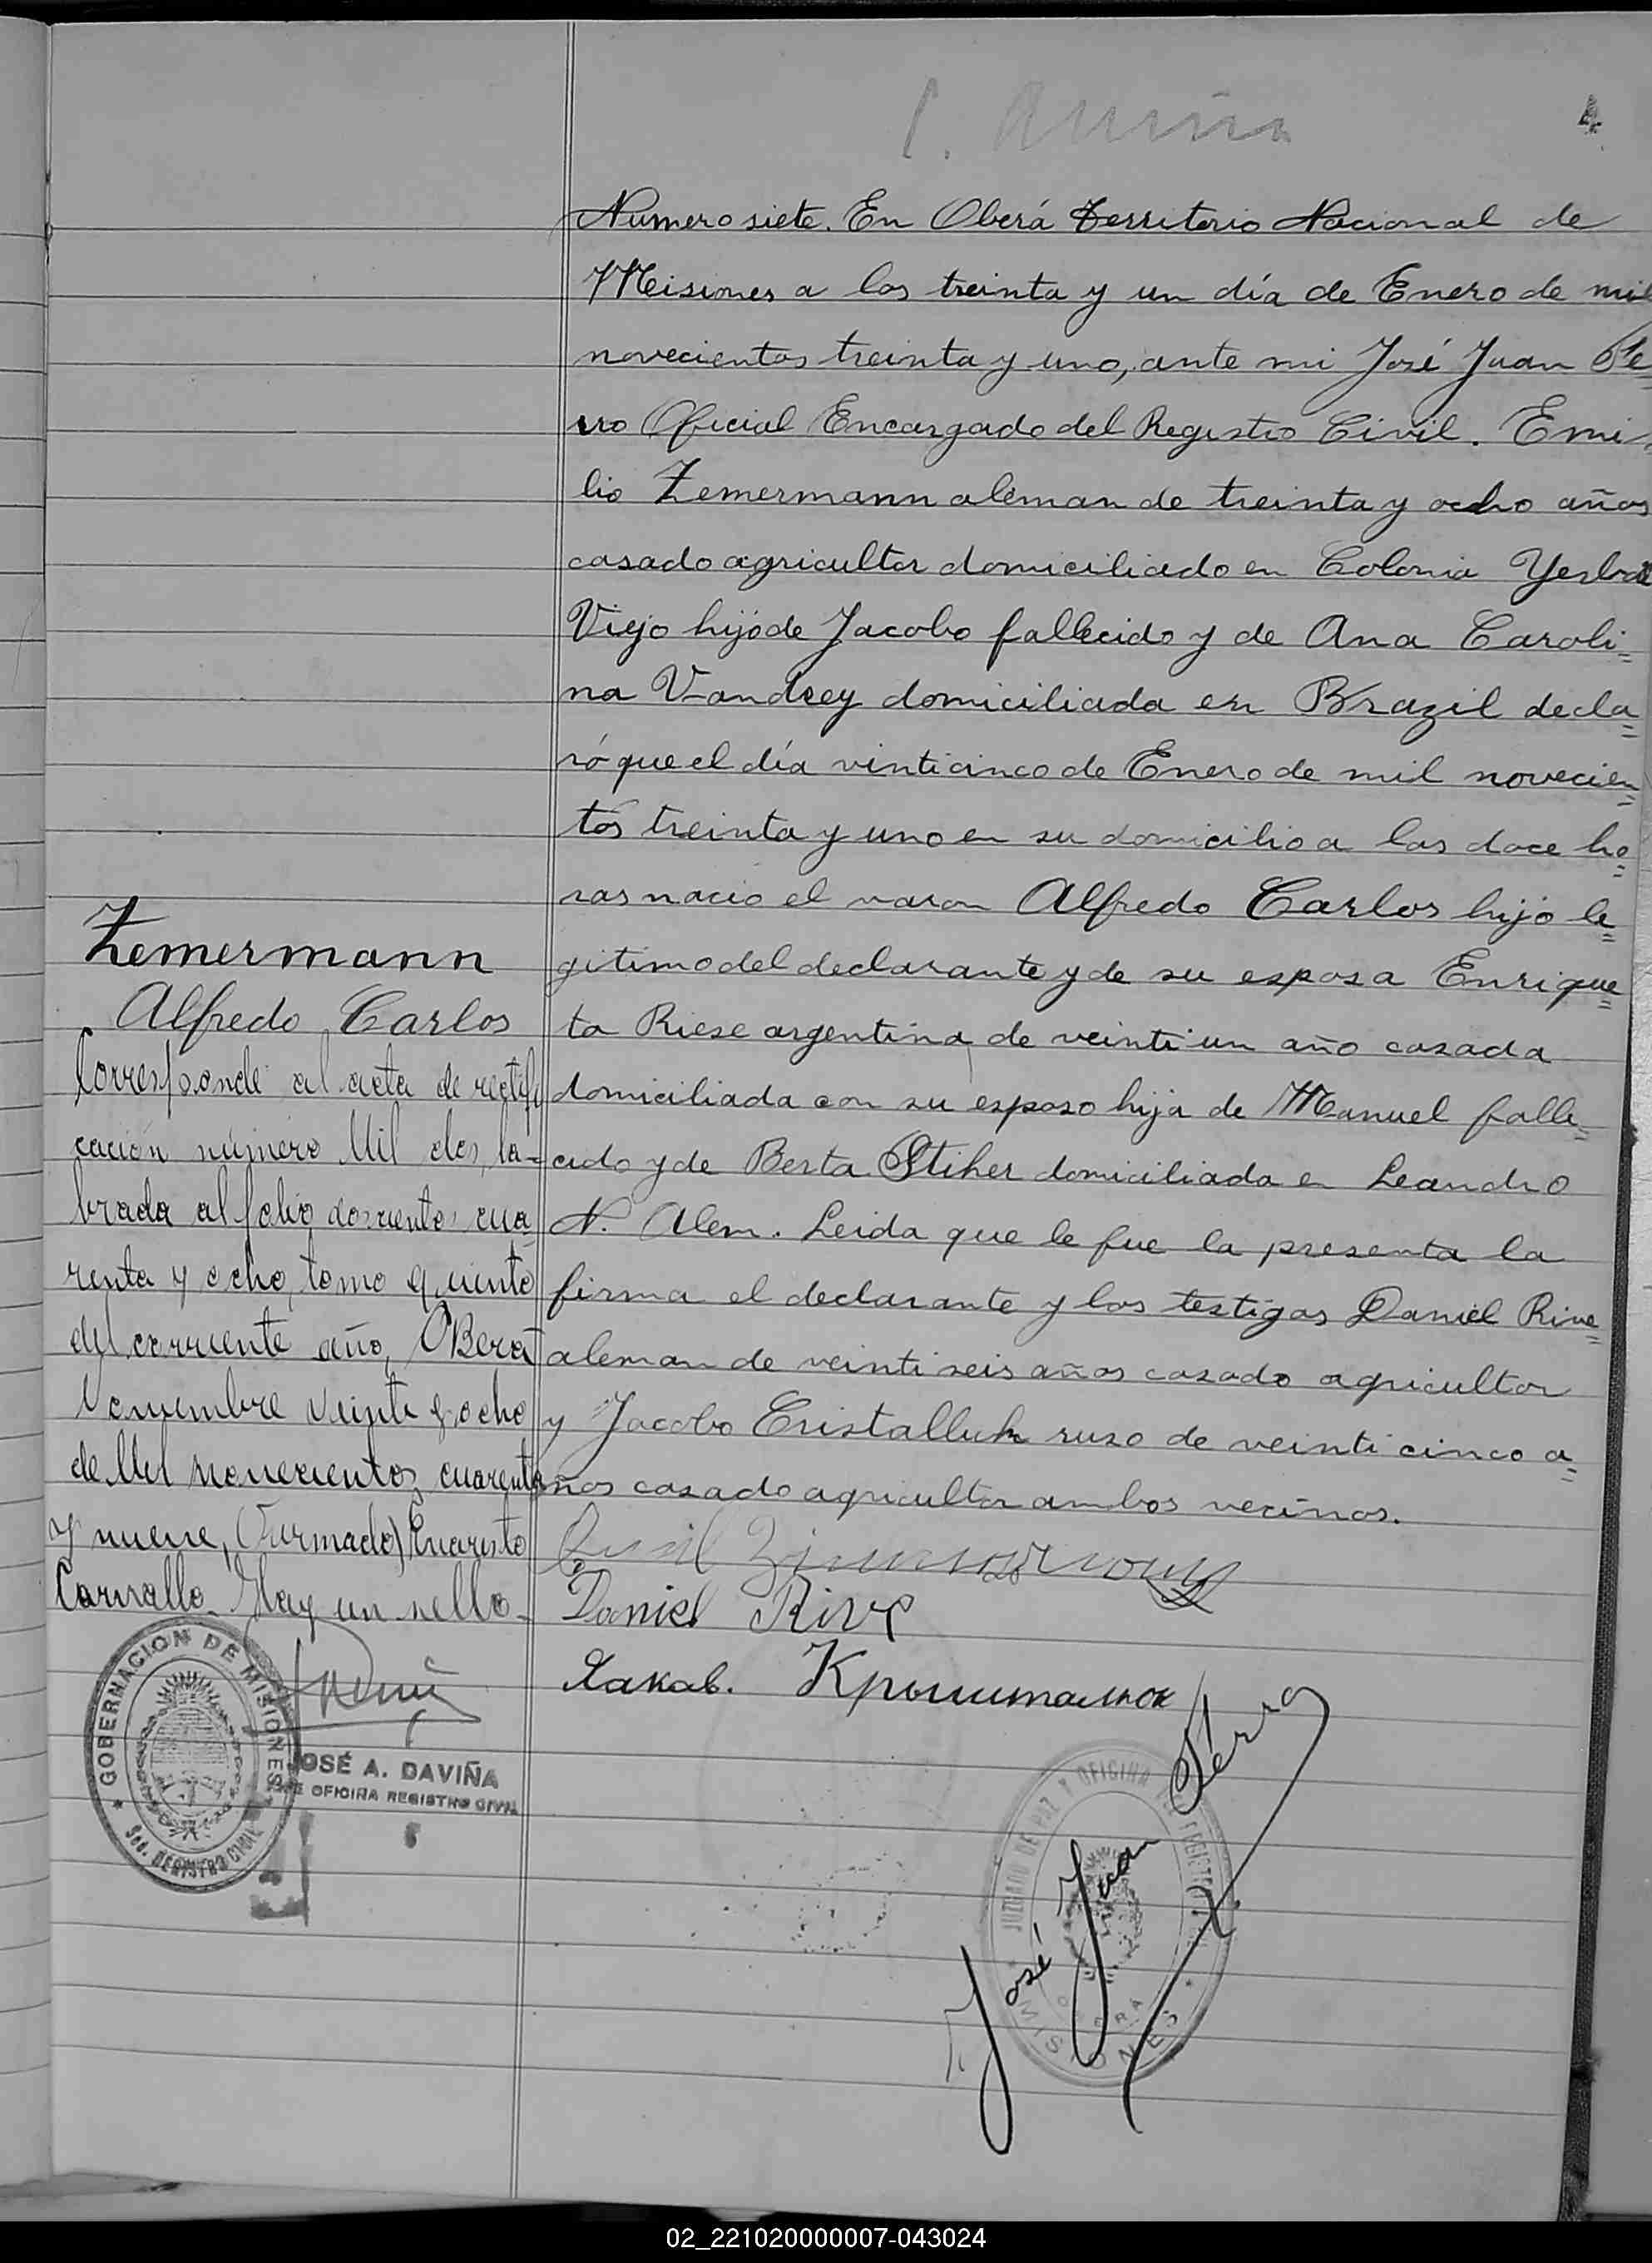 4
Numero siete. En Oberá Territorio Nacional de
Meisiones a los treinta y un día de Enero de mil
novecientos treinta y uno, ante mi José Juan Pe=
rro Oficial Encargado del Registro Civil. Emi=
lio Zemermann aleman de treinta y ocho años
casado agricultor domiciliado en Colonia Yerbal
Viejo hijo de Jacobo fallecido y de Ana Caroli=
na Vandrey domiciliada en Brazil decla=
ró que el día vinticinco de Enero de mil novecien=
tos treinta y uno en su domicilio a las doce ho=
ras nacio el varon Alfredo Carlos hijo le=
gitimo del declarante y de su esposa Enrique=
ta Riese argentina de veintiun año casada
domiciliada con su esposo hija de Manuel falle=
cido y de Berta Stiher domiciliada en Leandro
N. Alem. Leida que le fue la presenta la
firma el declarante y los testigos Daniel Rive=
aleman de veintiseis años casado agricultor
y Jacobo Cristalluk ruso de veinticinco a=
ños casado agricultor ambos vecinos.
Daniel Rive
José Juan Perro
JUZGADO DE PAZ Y OFICINA DEL REGISTRO CIVIL
OBERÁ
MISIONES
Zemermann
Alfredo Carlos
Corresponde al acta de rectifi
cación número Mil dos, la-
brada al folio doscientos cua
renta y ocho, tomo quinto
del corriente año, Oberá
Noviembre veinte y ocho
de Mil novecientos cuarenta
y nueve, (Firmado) Evaristo
Carvallo. Hay un sello.
GOBERNACION DE MISIONES
Sec. REGISTRO CIVIL
JOSÉ A. DAVIÑA
JEFE OFICINA REGISTRO CIVIL
02_221020000007-043024